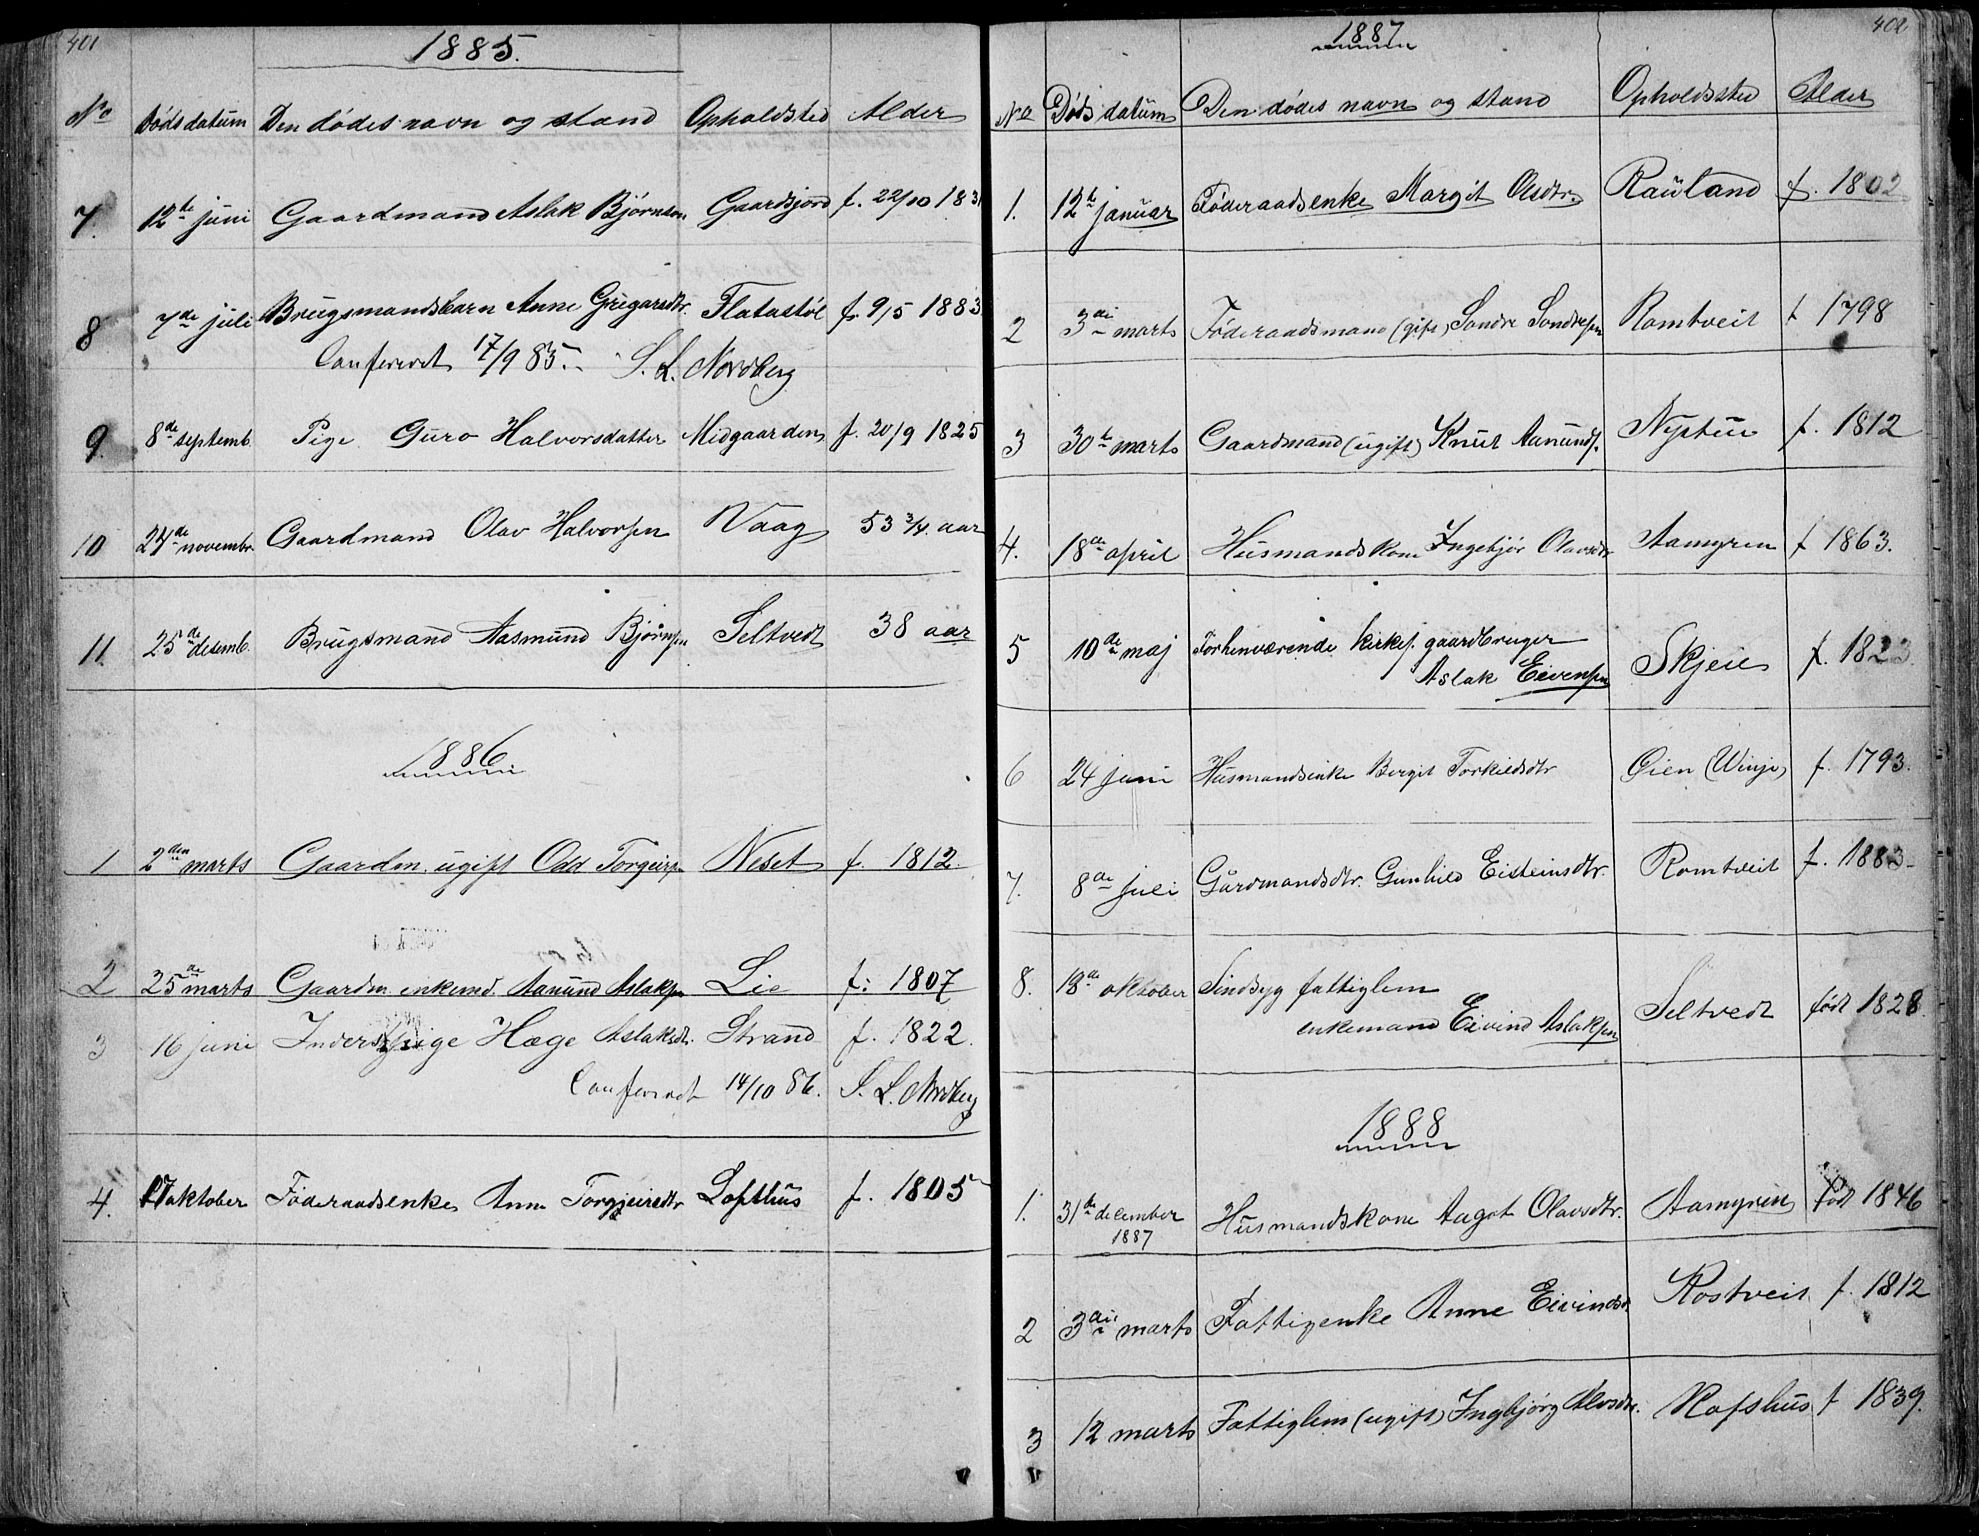 401
1885.
No Dødsdatum Den dødes navn og stand Opholdsted Alder
7. 12te juni Gaardmand Aslak Bjørnsen Gaardsjord f. 22/10 1831
8 7de juli Brugsmandsbarn Anne Gregarsdtr. Flatastøl f. 9/5 1883
Confereret 17/9 85. S. L. Nordberg
9. 8de septemb. Pige Guro Halvorsdatter Midgaarden f. 20/9 1825
10 24de novembr. Gaardmand Olav Halvorsen Vaag 53 3/4 aar
11. 25de desemb. Brugsmand Aasmund Bjørnsen Seltvedt 38 aar
1886
1 2den marts Gaardm. ugift Odd Torgeirsen Neset f. 1812.
2 25de marts Gaardm. enkemd. Aanund Aslaksen Lie f. 1807
3 16 juni Inderstpige Hæge Aslaksdt. Strand f. 1822.
Confereret 14/10 86. S. L. Nordberg
4. 17 aktober Føderaadsenke Anne Torgjeirsdtr Lofthus f. 1805
402
1887
No Døds datum Den dødes navn og stand Opholdssted Alder
1. 12te januar Føderaadsenke Margit Olsdtr. Rauland f. 1802
2 3die marts Føderaadsmand (gift) Sondre Sondresen Romtveit f 1798
3 30te marts Gaardmand (ugift) Knut Aanunds. Nystuu f. 1812
4. 18de april Husmandskone Ingebjør Olavsdtr Aamyren f 1863.
5 10de maj Forhenværende kirkes. gaardbruger
Aslak Eivensen Skjeie f. 1823.
6 24 juni Husmandsenke Bergit Torkildsdtr Øien (Winje) f. 1793.
7. 8de juli Gårdmandsdtr. Gunhild Eisteinsdtr. Romtveit f. 1883
8. 18de oktober Sindsyg fattiglem
enkemand Eivind Aslaksen Seltvedt født 1828.
1888
1. 31te december
1887 Husmandskone Aagot Olavsdtr. Aamyren født 1846
2 3die marts Fattigenke Anne Eivindsdt. Rostveit f. 1812
3 12 marts Fattiglem (ugift) Ingbjørg Alvsdtr. Hofshus f 1839.